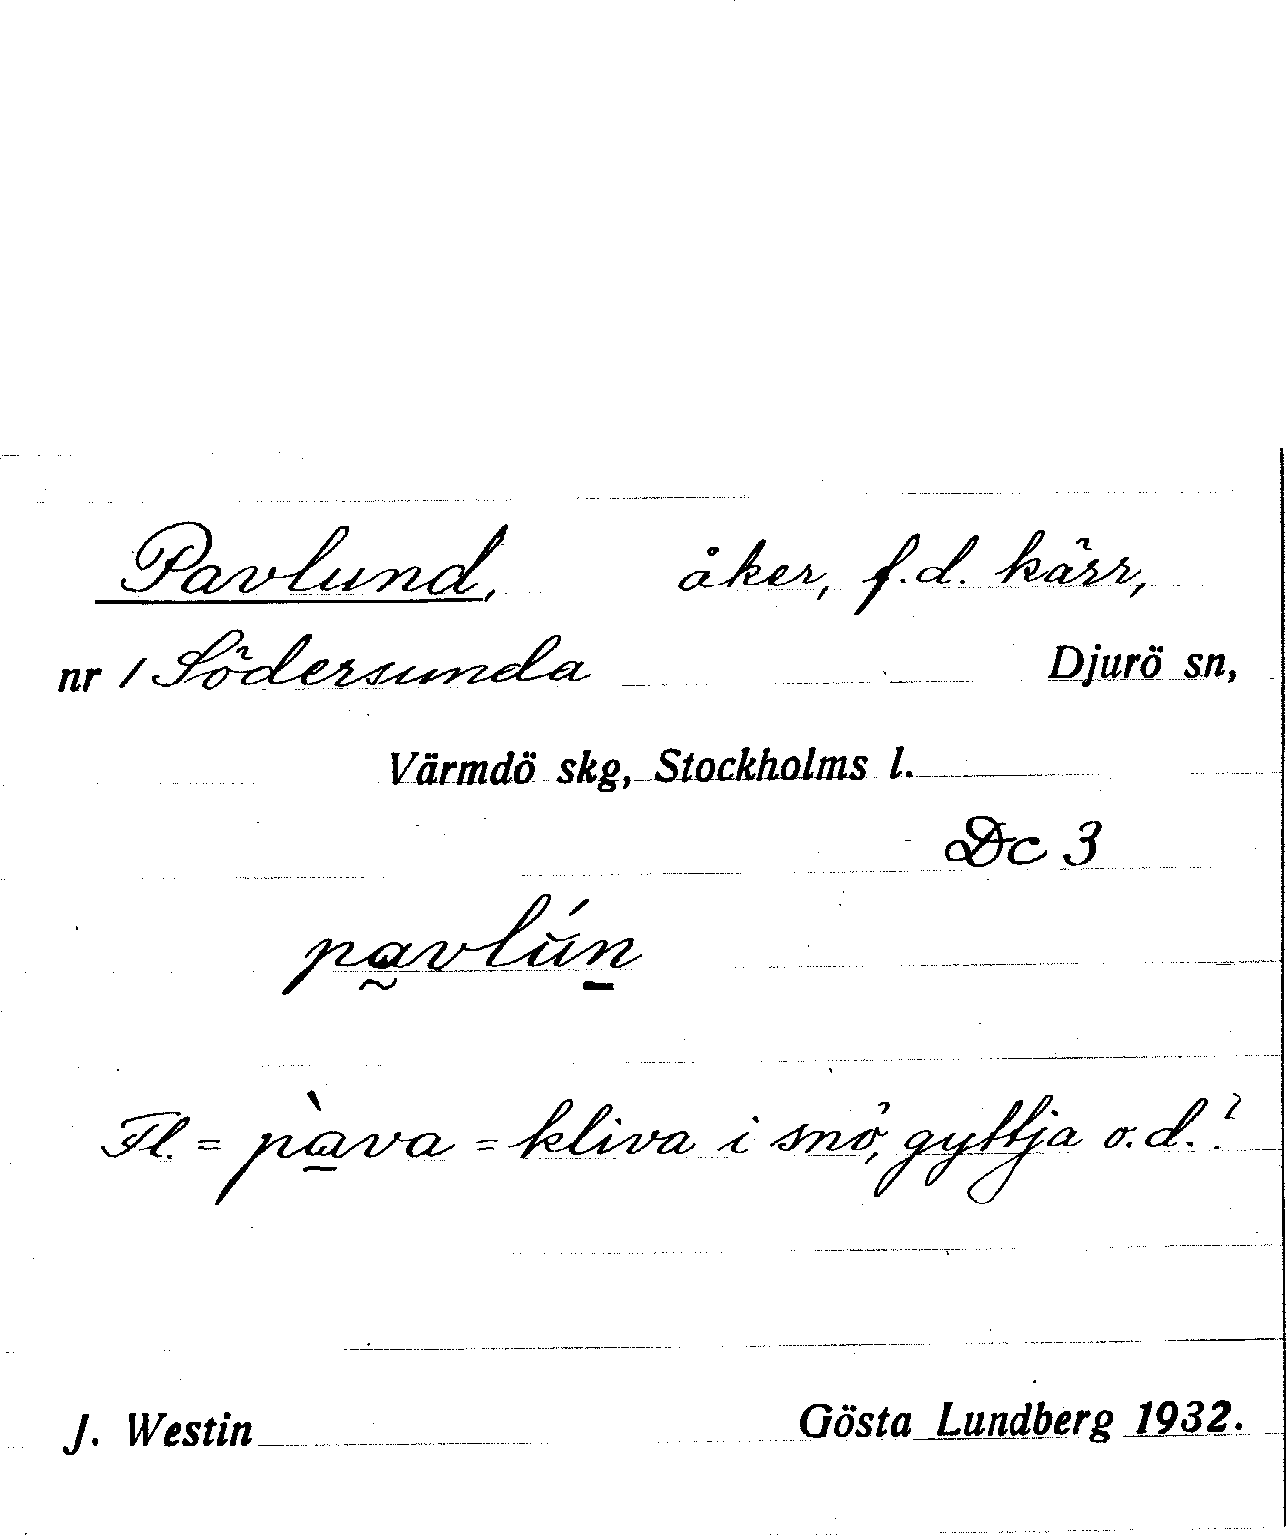 Pavlund, åker, f.d. kärr,
nr 1 Södersunda Djurö sn,
Värmdö skg, Stockholms l.
Dc 3
pa̰vlún̠
Fl. = pà̠va = kliva i snö, gyttja o.d.?
J. Westin Gösta Lundberg 1932.